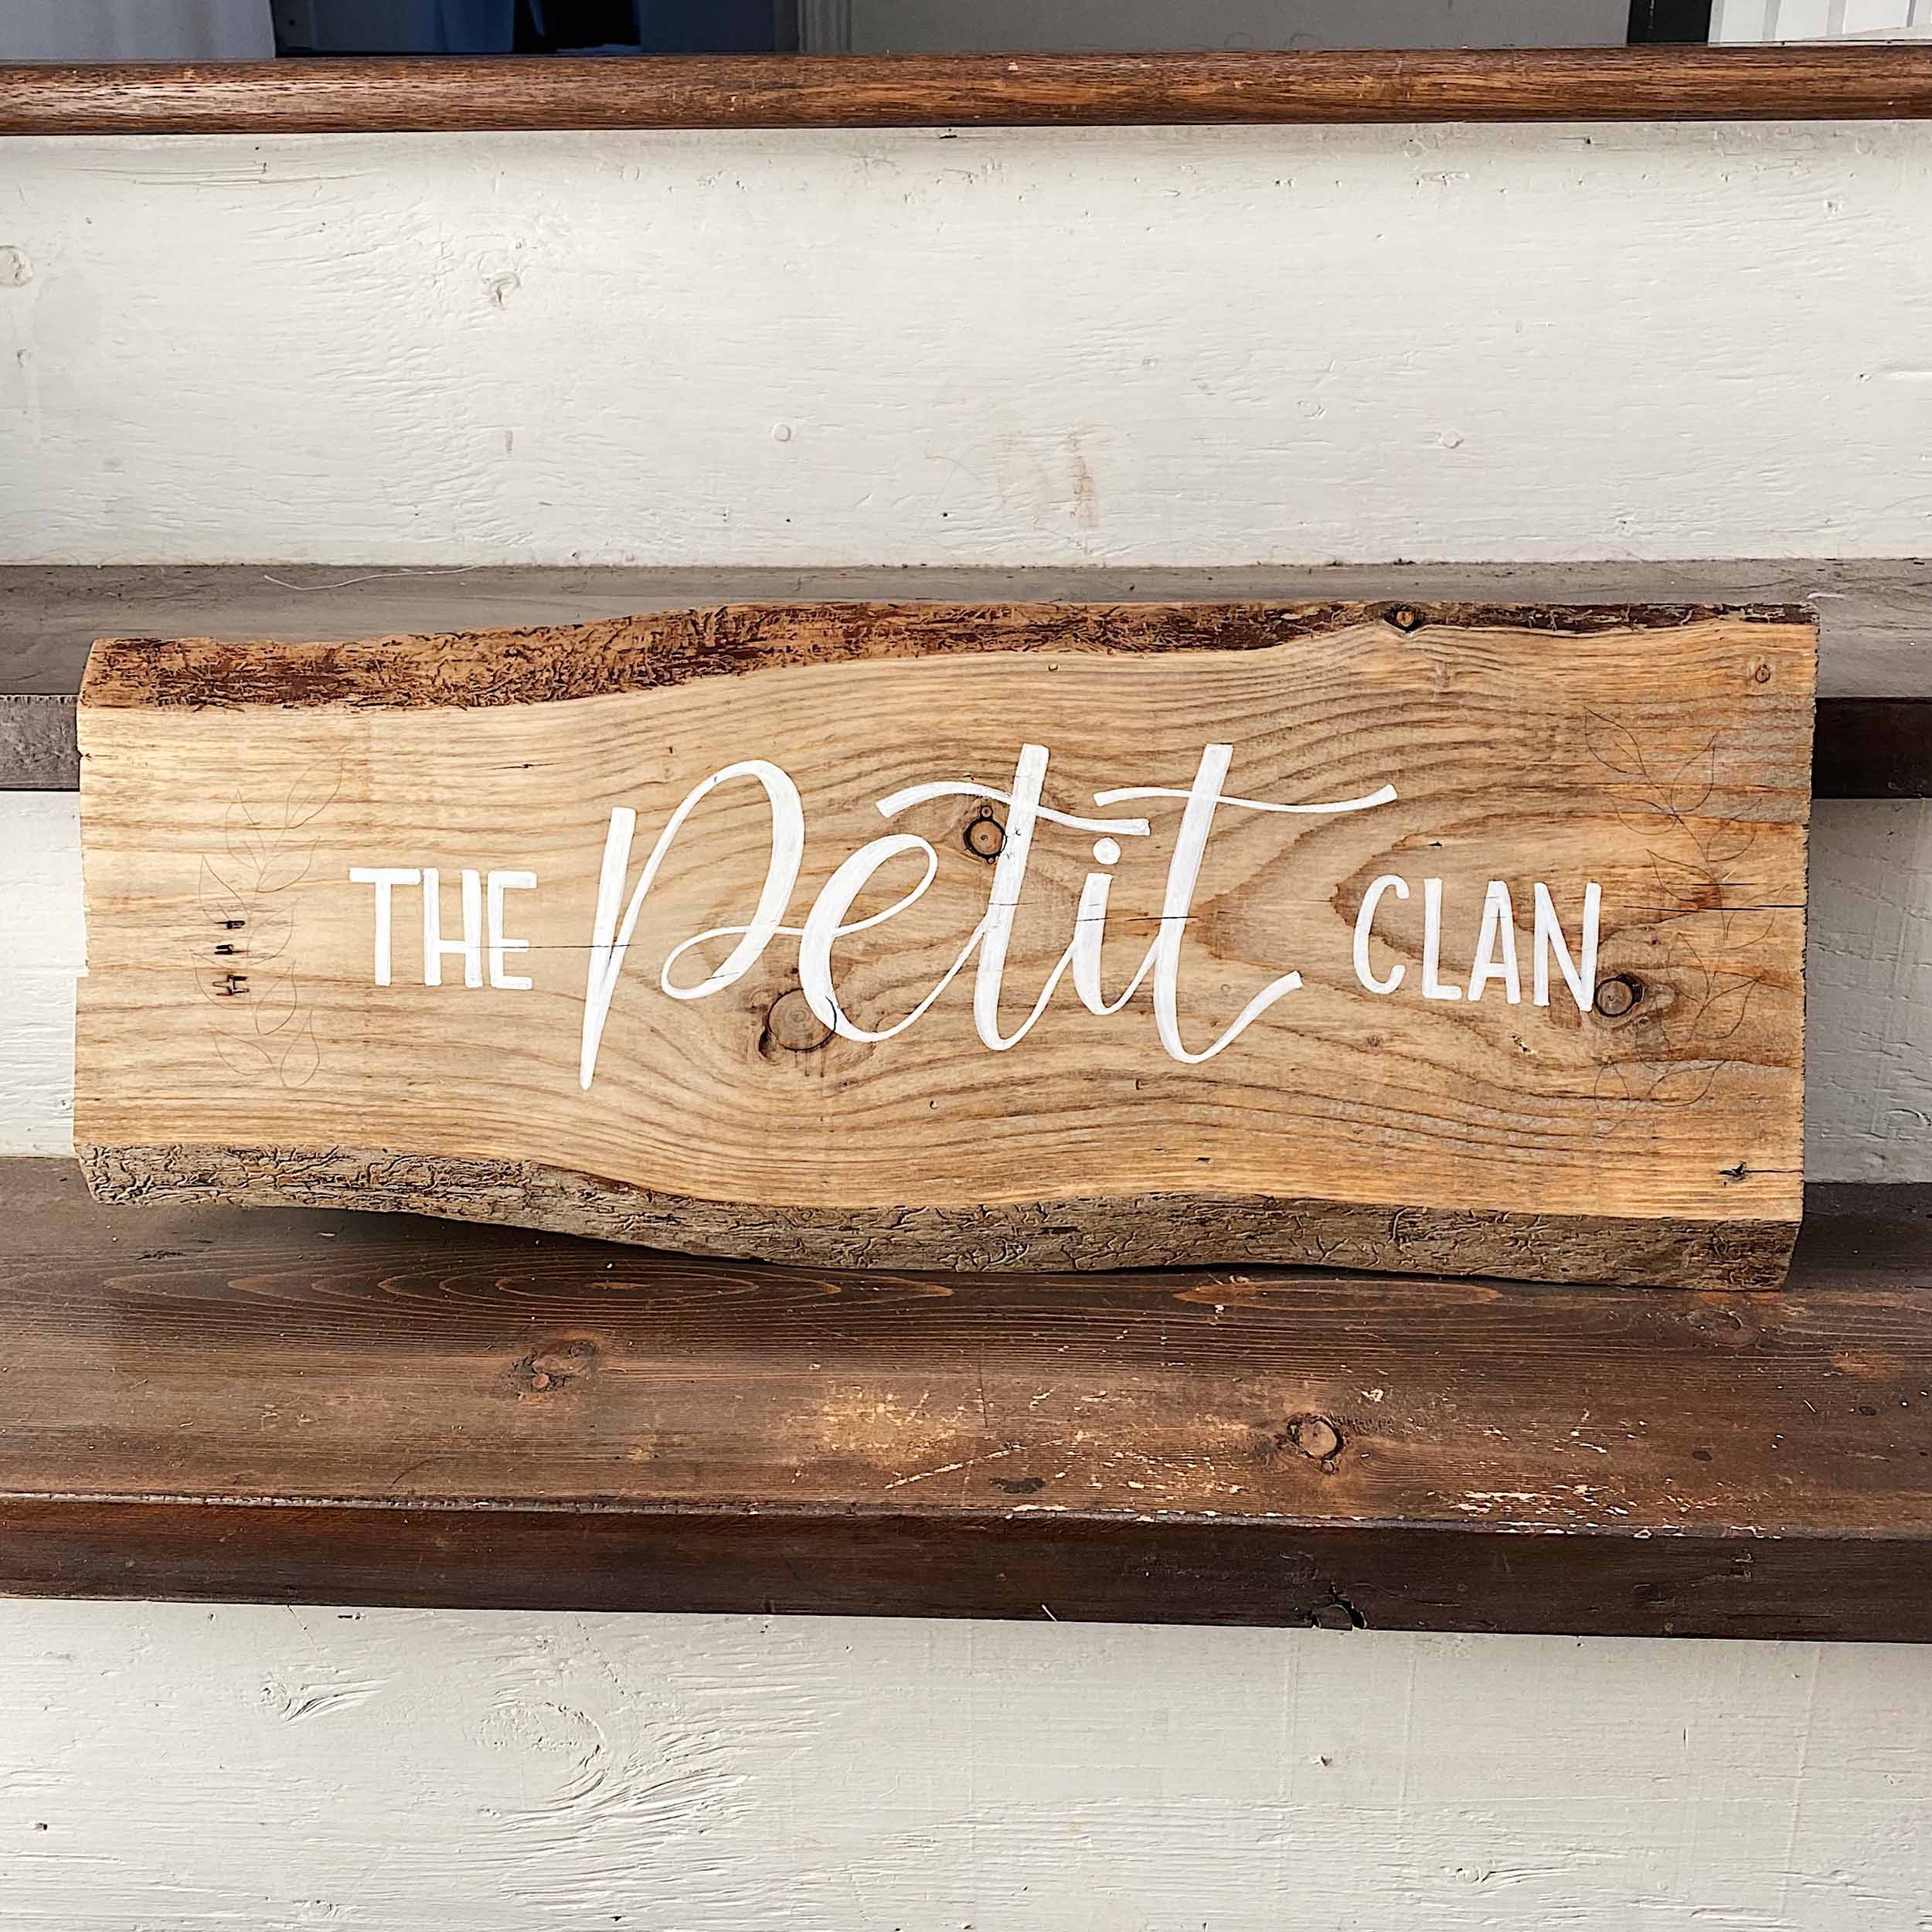 THE Petit CLAN